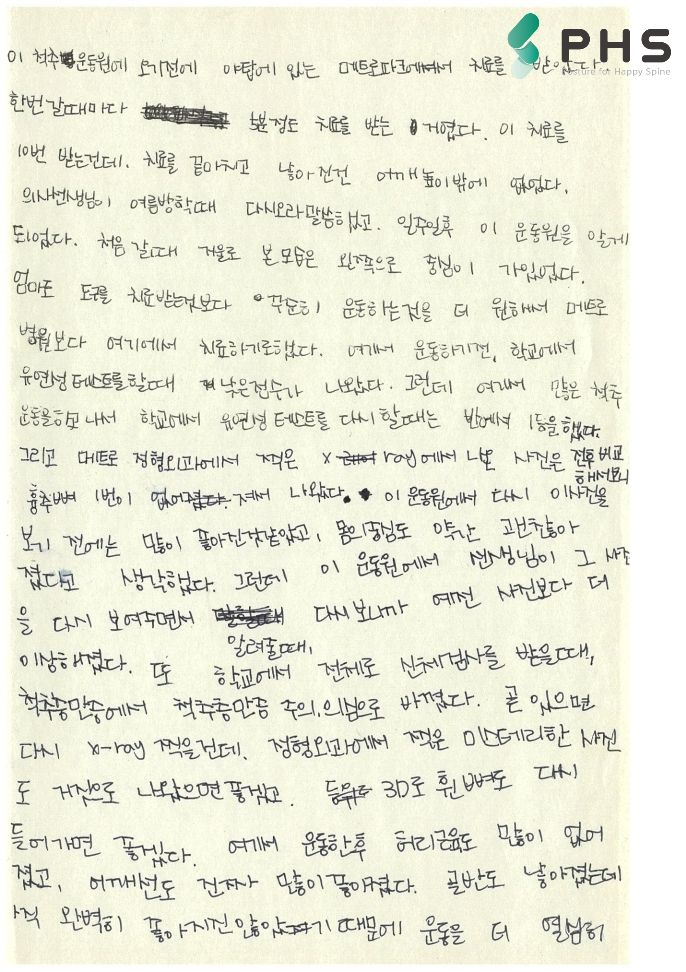 PHS
Posture for Happy Spine
이 척추운동원에 오기전에 야탑에 있는 메트로파크에서 치료를 받았다.
한번 갈때마다 분정도 치료를 받는 거였다. 이 치료를
10번 받는건데, 치료를 끝마치고 낳아진건 어깨높이밖에 없었다.
의사선생님이 여름방학때 다시오라말씀하셨고. 일주일후 이 운동원을 알게
되었다. 처음 갈때 거울로 본모습은 왼쪽으로 중심이 가있었다.
엄마도 도구를 치료받는것보다 꾸준히 운동하는것을 더 원해서 메트로
병원보다 여기에서 치료하기로했다. 여기서 운동하기전, 학교에서
유연성테스트를할때 낮은점수가 나왔다. 그런데 여기서 많은 척추
운동을하고 나서 학교에서 유연성테스트를 다시할때는 반에서 1등을했다.
그리고 메트로 정형외과에서 찍은 x ray에서 나온 사진은 전후비교
해서보니
흉추뼈 1번이 없어졌다. 져서 나왔다. 이 운동원에서 다시 이사진을
보기 전에는 많이 좋아진것같았고, 몸의중심도 약간 괜찮아
졌다고 생각했다. 그런데 이 운동원에서 선생님이 그 사진
을 다시 보여주면서 다시보니까 예전 사진보다 더
알려줄때,
이상해졌다. 또 학교에서 전체로 신체검사를 받을때,
척추층만증에서 척추층만증 주의.의심으로 바꼈다. 곧 있으면
다시 x-ray 찍을건데. 정형외과에서 찍은 미스테리한 사진
도 거짓으로 나왔으면좋겠고. 등뒤로 3D로 휜뼈도 다시
들어가면 좋겠다. 여기서 운동한후 허리굽음도 많이 없어
졌고, 어깨선도 진짜 많이좋아졌다. 골반도 낳아졌는데
아직 완벽히 좋아지진않았기때문에 운동을 더 열심히